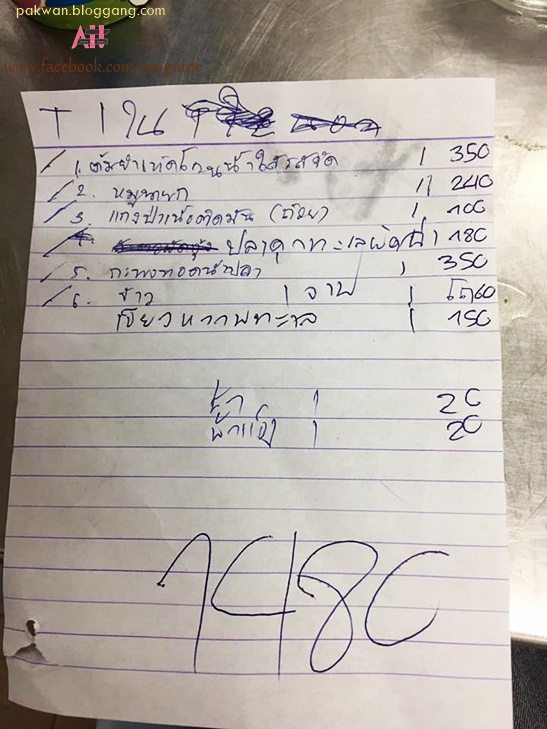 pakwan.bloggang.com
www.facebook.com/
T 1 ใน
1. ต้มยำเห็ดโคนน้ำใสรสจัด 1 350
2. หมู 11 240
3. แกงป่าเนื้อติดมัน (ถ้วย) 1 100
4. ปลาดุกทะเลผัดฉ่า 1 180
5. กะพงทอดน้ำปลา 1 350
6. ข้าว 1 จาน 1 โถ 60
เขียวหวานทะเล 1 150
1 20
น้ำแข็ง 1 20
1480